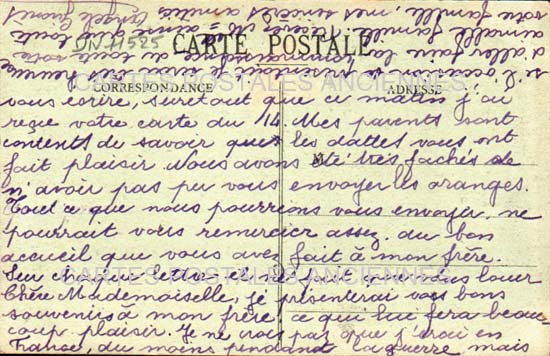 DN 11525
CARTE POSTALE
CORRESPONDANCE
ADRESSE
CARTES POSTALES ANCIENNES
vous écrire, surtout que ce matin j'ai
reçue votre carte du 14 Mes parents sont
contents de savoir que les dattes vous ont
fait plaisir. Nous avons été très fachés de
n'avoir pas pu vous envoyer les oranges.
Tout ce que nous pourrions vous envoyer ne
pourrait vous remercier assez du bon
accueil que vous avez fait à mon frère.
Sur chaque lettre, il ne fait que vous louer
CARTES POSTALES ANCIENNES
Chère Mademoiselle, je présenterai vos bons
souvenirs à mon frère ce qui lui fera beau
coup plaisir. Je ne crois pas que j'irai en
France, du moins pendant la guerre, mais
si l'occasion se présentait je serais heureuse
d'aller faire la connaissance de toute votre
aimable famille. Recevez ainsi que toute
votre famille, mes sincères amitiés Angèle